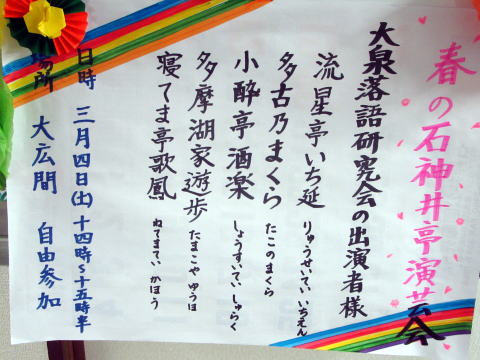 春の石神井亭演芸会
大泉落語研究会の出演者様
流星亭いち延 りゅうせいてい いちえん
多古乃まくら たこのまくら
小酔亭酒楽 しょうすいてい しゅらく
多摩湖家遊歩 たまこや ゆうほ
寝てま亭歌鳳 ねてまてい かほう
日時 三月四日(土)十四時~十五時半
場所 大広間 自由参加